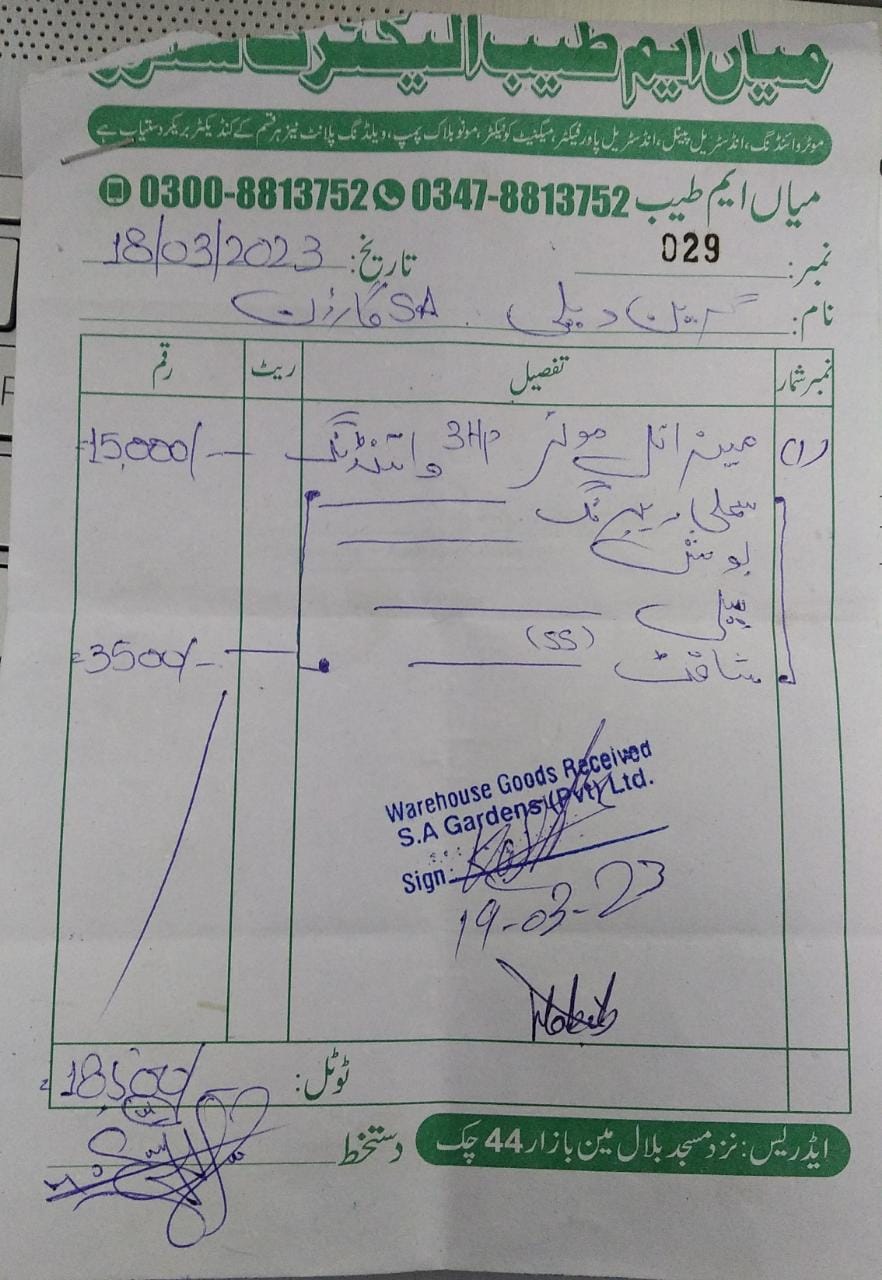 میاں ایم طیب الیکٹرک سٹور
موٹر وائنڈنگ، انڈسٹریل پینل، انڈسٹریل پاور فیکٹر، میگنیٹ کونیکٹر، مونو بلاک پمپ، ویلڈنگ پلانٹ نیز ہر قسم کے کنڈیکٹر بریکر دستیاب ہے
میاں ایم طیب 0347-8813752 0300-8813752
نمبر: 029 تاریخ: 18/03/2023
نام: گرین ویلی SA گارڈن
نمبر شمار تفصیل ریٹ رقم
(1) موٹر 3HP وائنڈنگ 15,000/-
بوش
شافٹ (SS) 3500/-
Warehouse Goods Received
S.A Gardens (Pvt) Ltd.
Sign:
19-03-23
ٹوٹل: 18,500/
دستخط
ایڈریس: نزد مسجد بلال مین بازار 44 چک